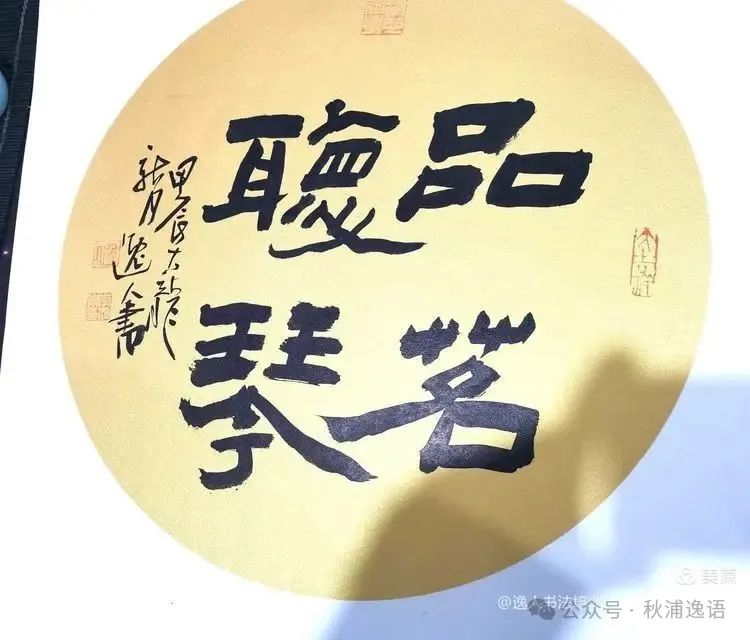 品茗
聽琴
甲辰大
逸人書
美篇
@逸人书法培
公众号 · 秋浦逸语